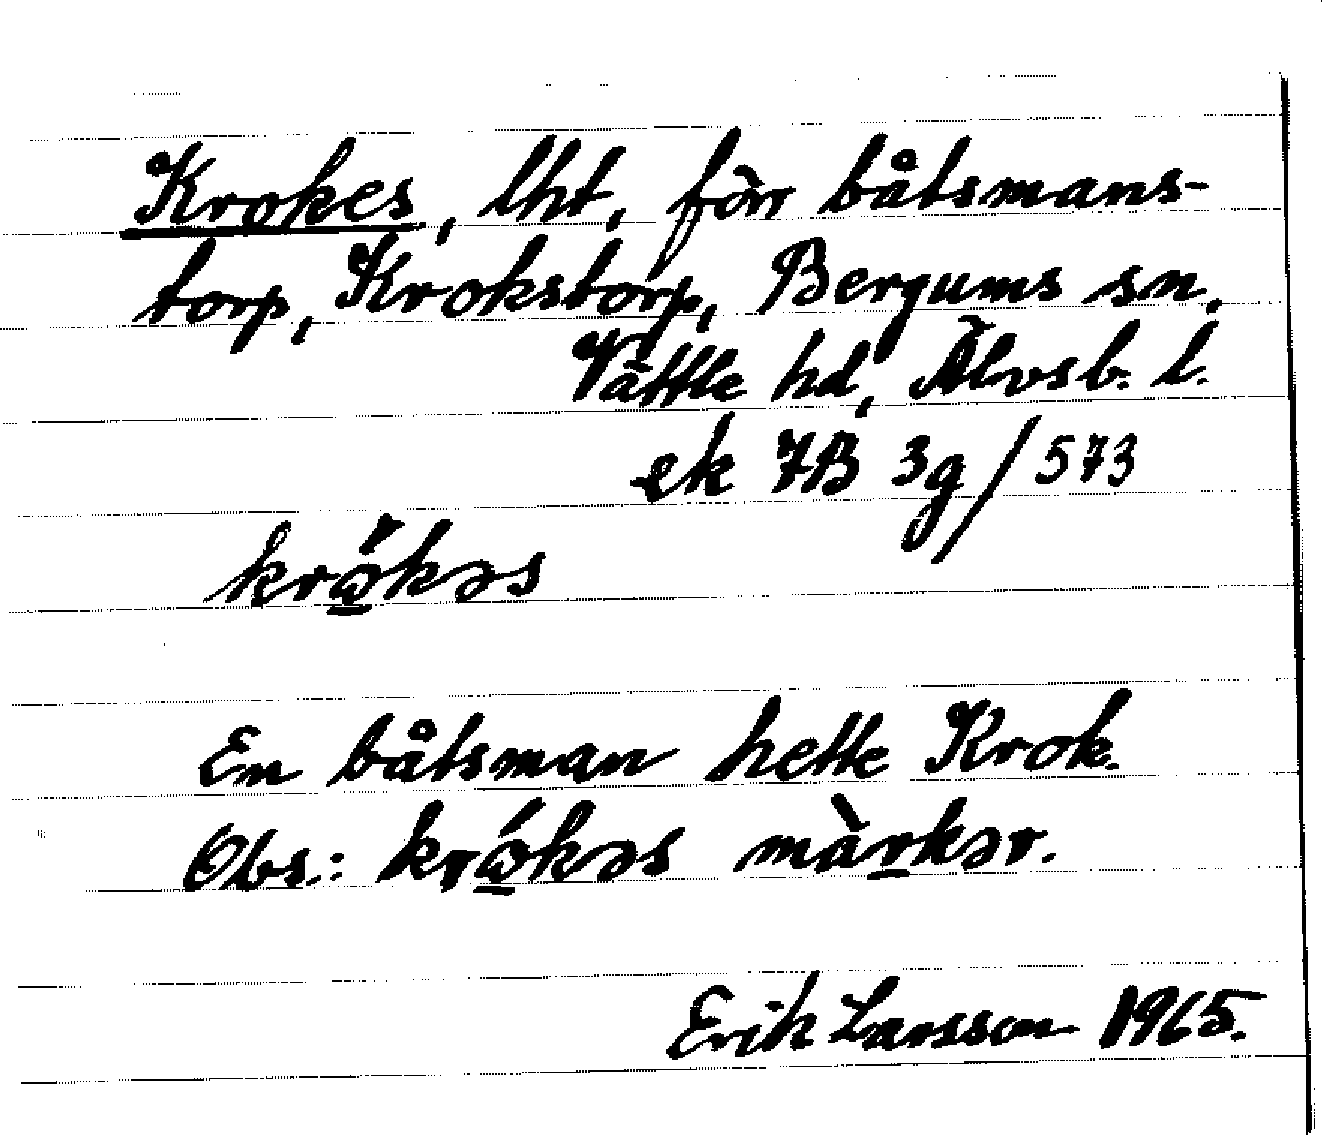 Krokes, lht, förr båtsmans-
torp, Krokstorp, Bergums sn.
Vättle hd, Älvsb. l.
ek 7B 3g/573
krώ̲kəs
En båtsman hette Krok.
Obs.: krώ̲kəs màr̲kər.
Erik Larsson 1965.